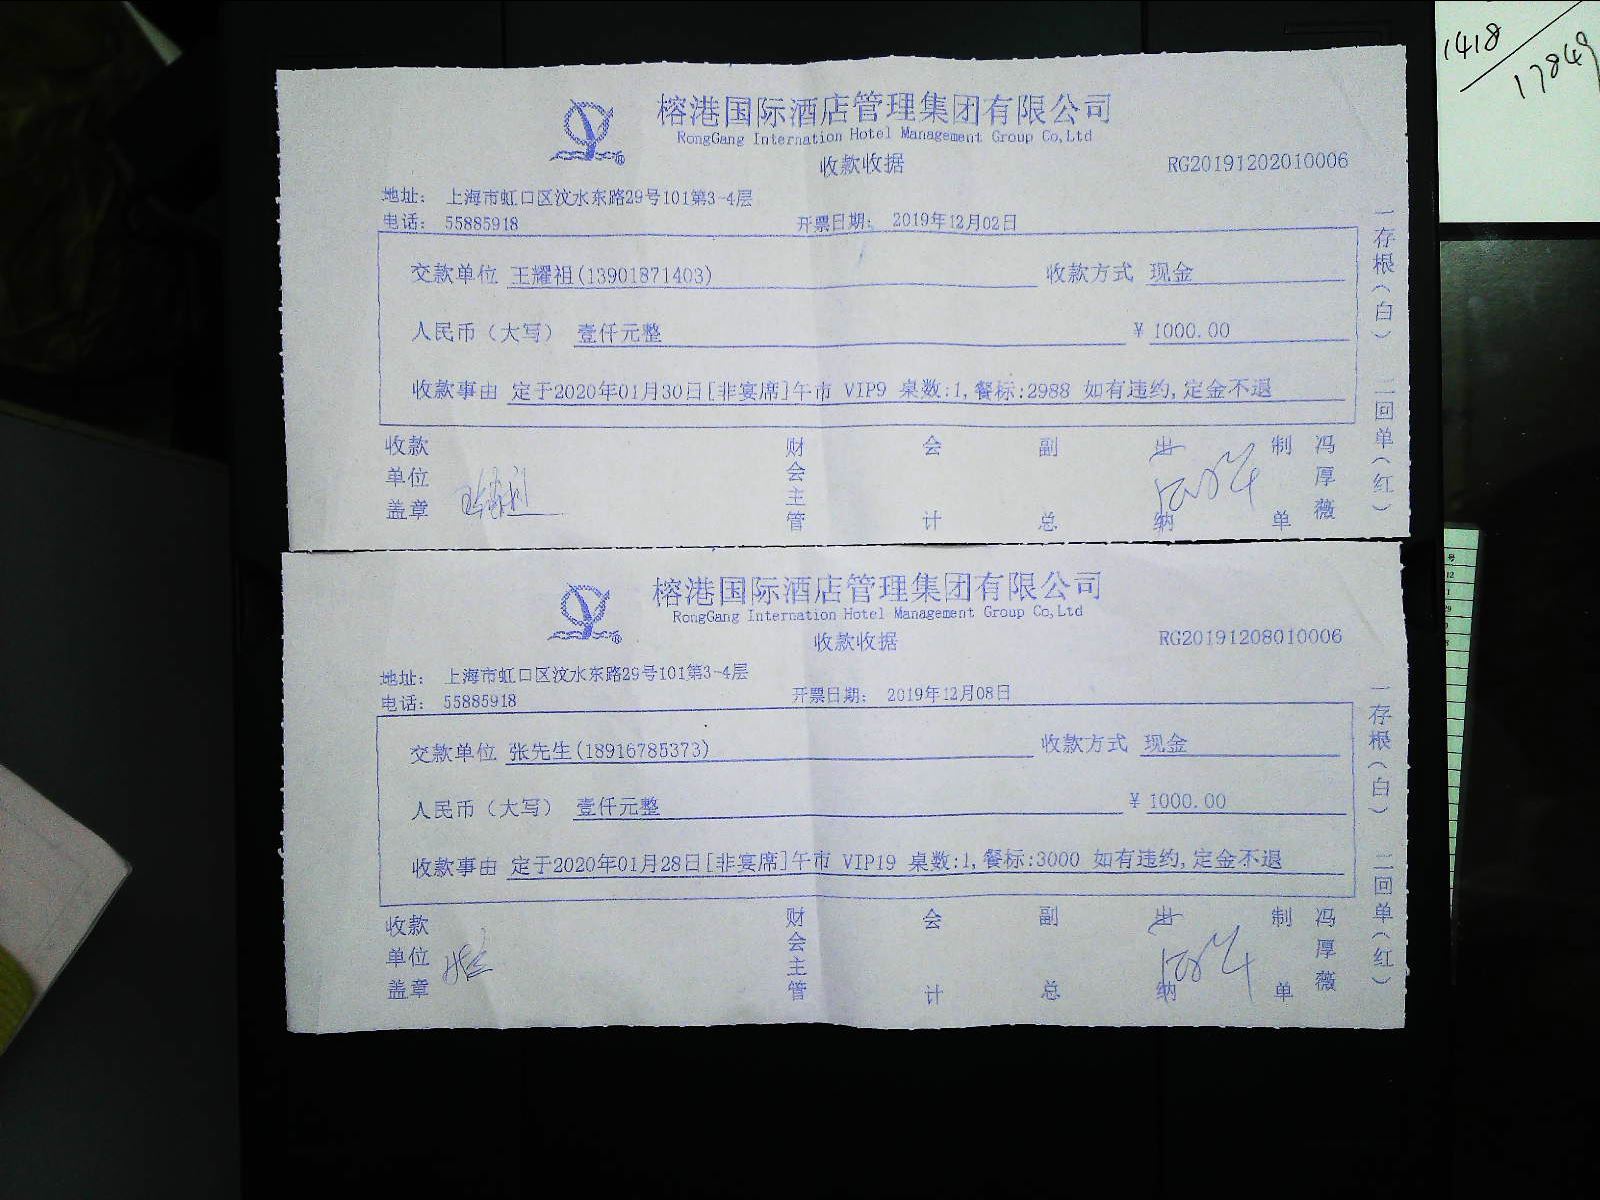 1418
17849
榕港国际酒店管理集团有限公司
RongGang Internation Hotel Management Group Co,Ltd
收款收据 RG20191202010006
地址： 上海市虹口区汶水东路29号101第3-4层
电话： 55885918 开票日期： 2019年12月02日
交款单位 王耀祖(13901871403) 收款方式 现金
人民币（大写） 壹仟元整 ¥ 1000.00
收款事由 定于2020年01月30日[非宴席]午市 VIP9 桌数:1,餐标:2988 如有违约,定金不退
收款单位盖章 财会主管 会计 副总 出纳 制单 冯厚薇
一存根（白） 二回单（红）
榕港国际酒店管理集团有限公司
RongGang Internation Hotel Management Group Co,Ltd
收款收据 RG20191208010006
地址： 上海市虹口区汶水东路29号101第3-4层
电话： 55885918 开票日期： 2019年12月08日
交款单位 张先生(18916785373) 收款方式 现金
人民币（大写） 壹仟元整 ¥ 1000.00
收款事由 定于2020年01月28日[非宴席]午市 VIP19 桌数:1,餐标:3000 如有违约,定金不退
收款单位盖章 财会主管 会计 副总 出纳 制单 冯厚薇
一存根（白） 二回单（红）